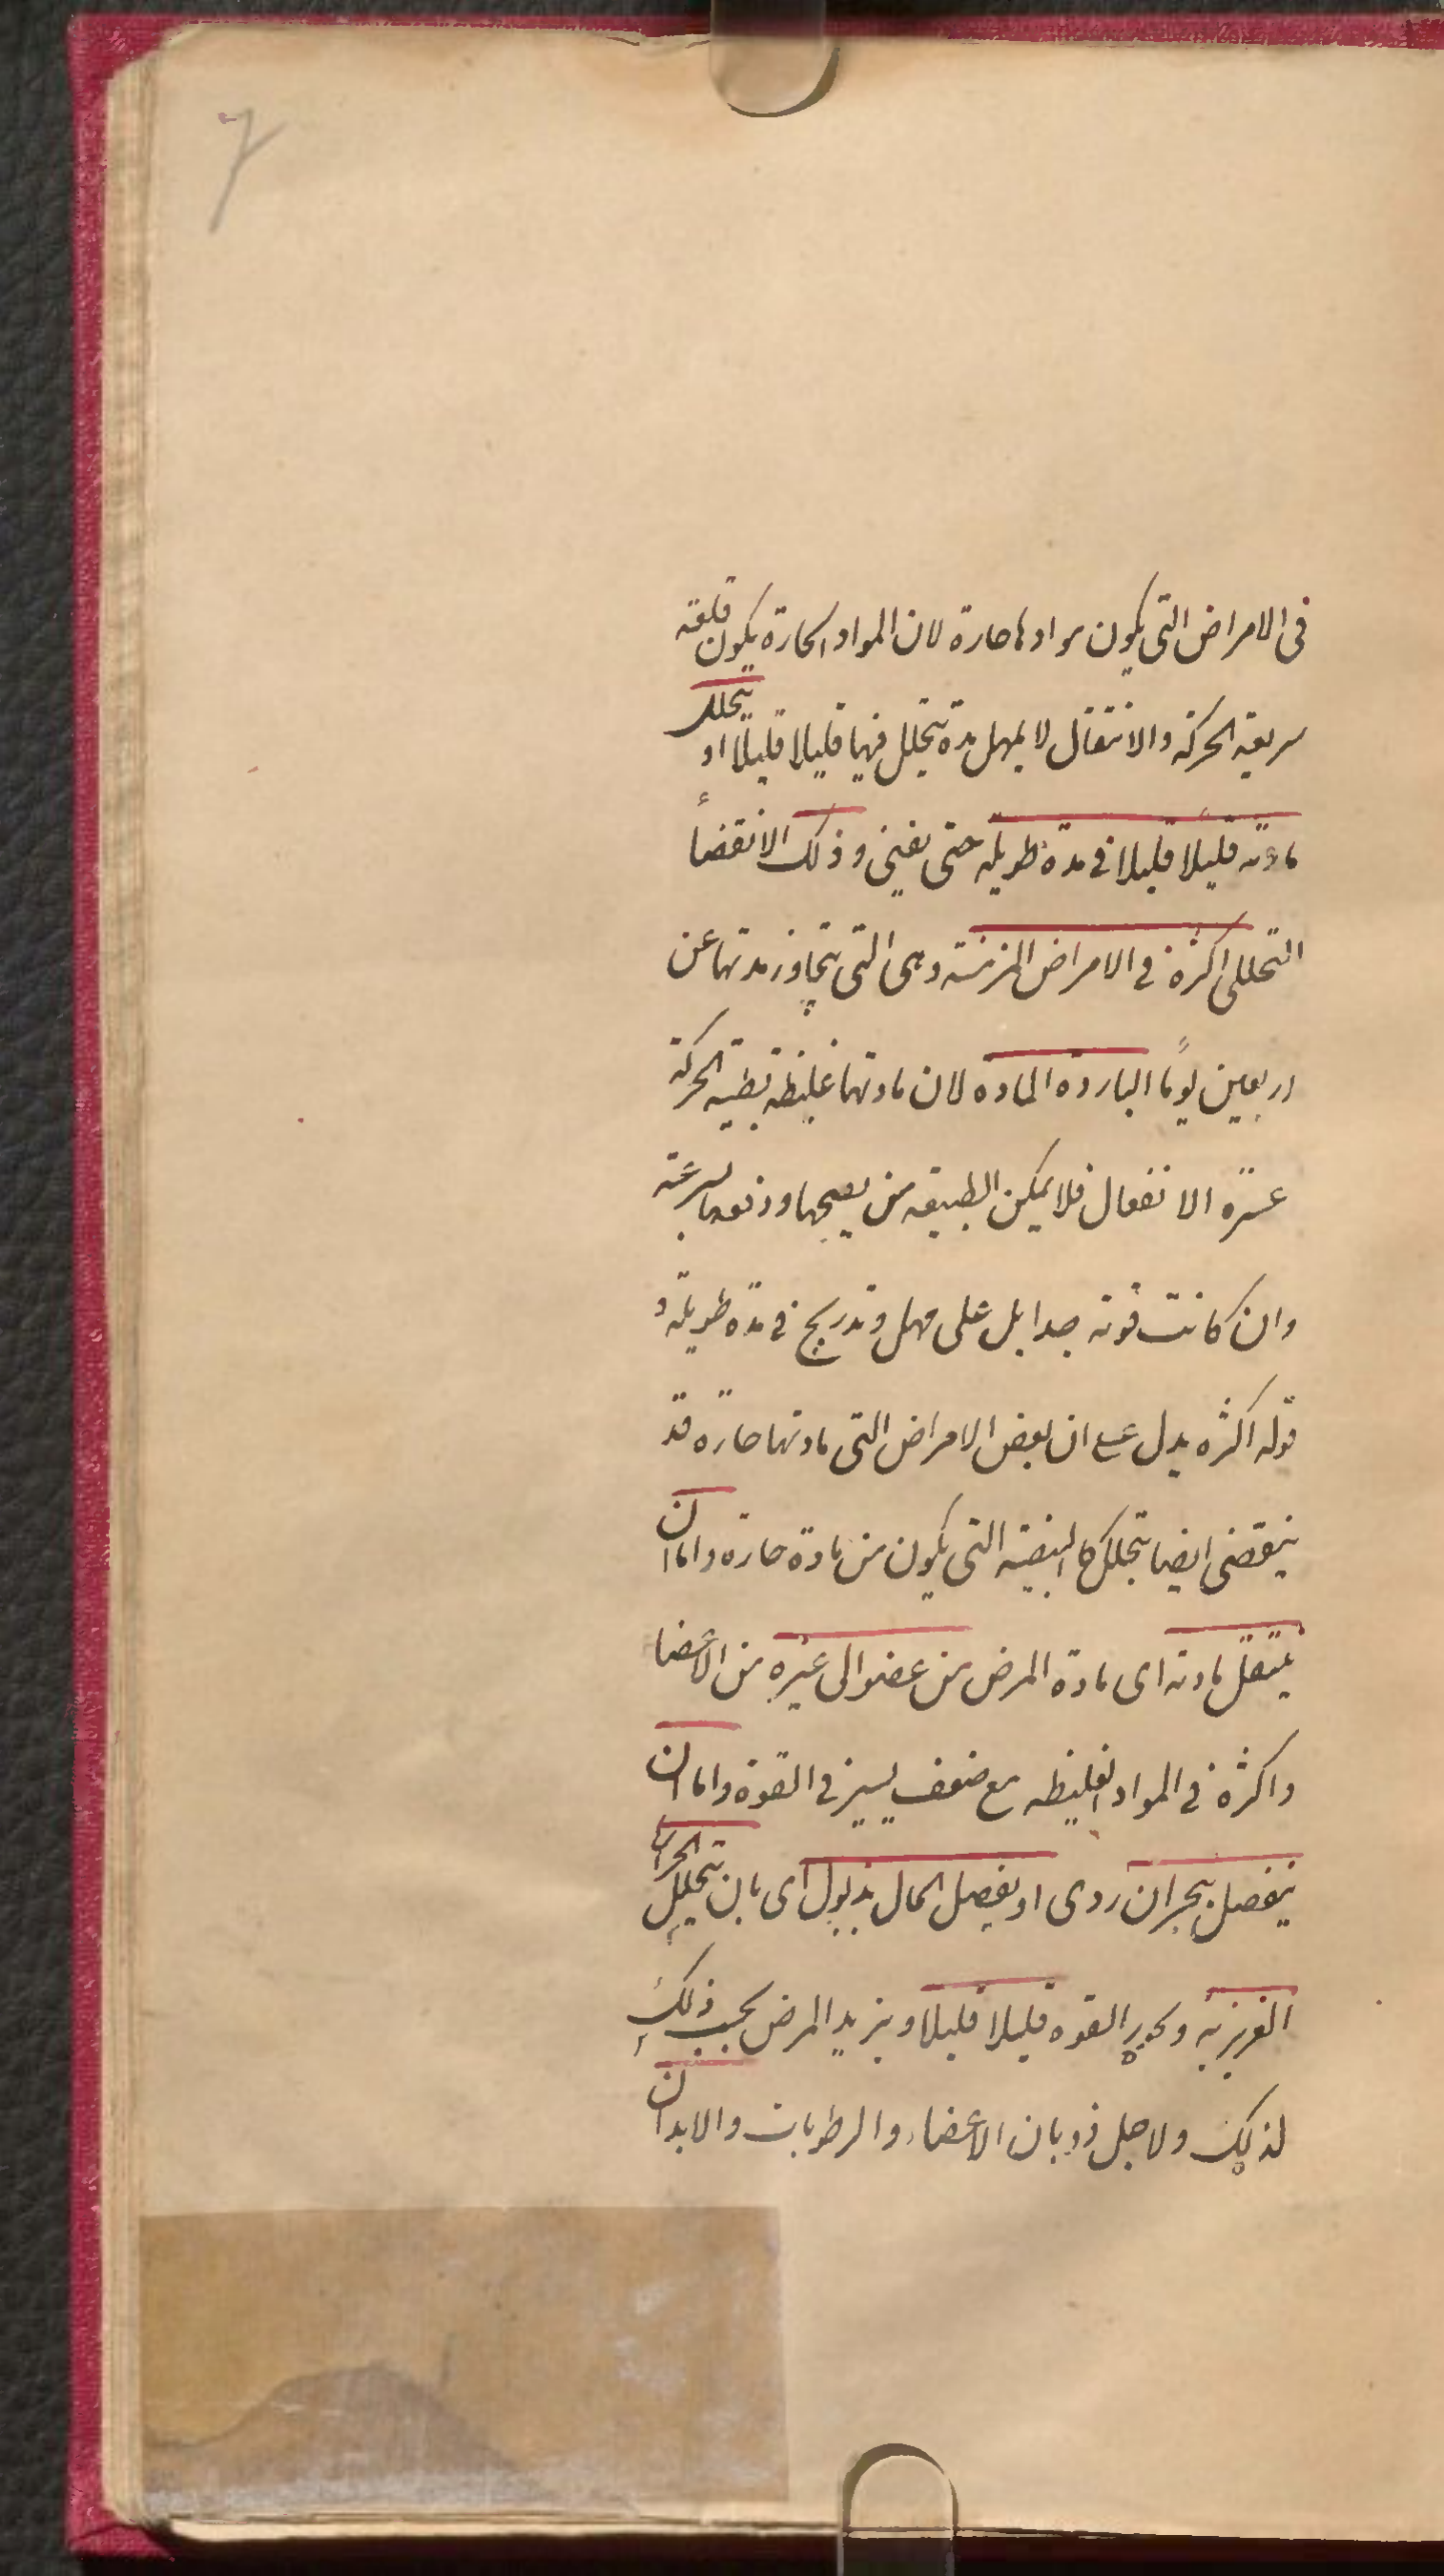 في الامراض التي يكون موادها حارة لان المواد الحارة يكون قلقة
سريعة الحركة والانتقال لا يمهل مدة يتحلل فيها قليلا قليلًا او يتحلل
مادته قليلًا قليلا في مدة طويلة حتى يفنى وذلك الانقضأ
التحللى اكثره في الامراض المزمنة وهى التي يتجاوز مدتها عن
اربعين يومًا الباردة المادة لان مادتها غليظة بطيئة الحركة
عسرة الانفعال فلا يمكن الطبيعة من ودفعها بسرعة
وان كانت قوته جدا بل على مهل وتدريج في مدة طويلة و
قوله اكثره يدل على ان بعض الامراض التي مادتها حارة قد
ينقضى ايضا بتحلل التي يكون من مادة حارة واما ان
ينتقل مادته اى مادة المرض من عضو الى غيره من الأعضا
واكثره في المواد الغليظه مع ضعف يسير في القوة واما ان
ينفصل ببحران ردى او يفصل الحال بذبول اى بان يتحلل الحرارة
الغريزية ويخور القوه قليلا قليلا ويزيد المرض بحسب ذلك
لذلك ولاجل ذوبان الأعضاء والرطوبات والابدان
7